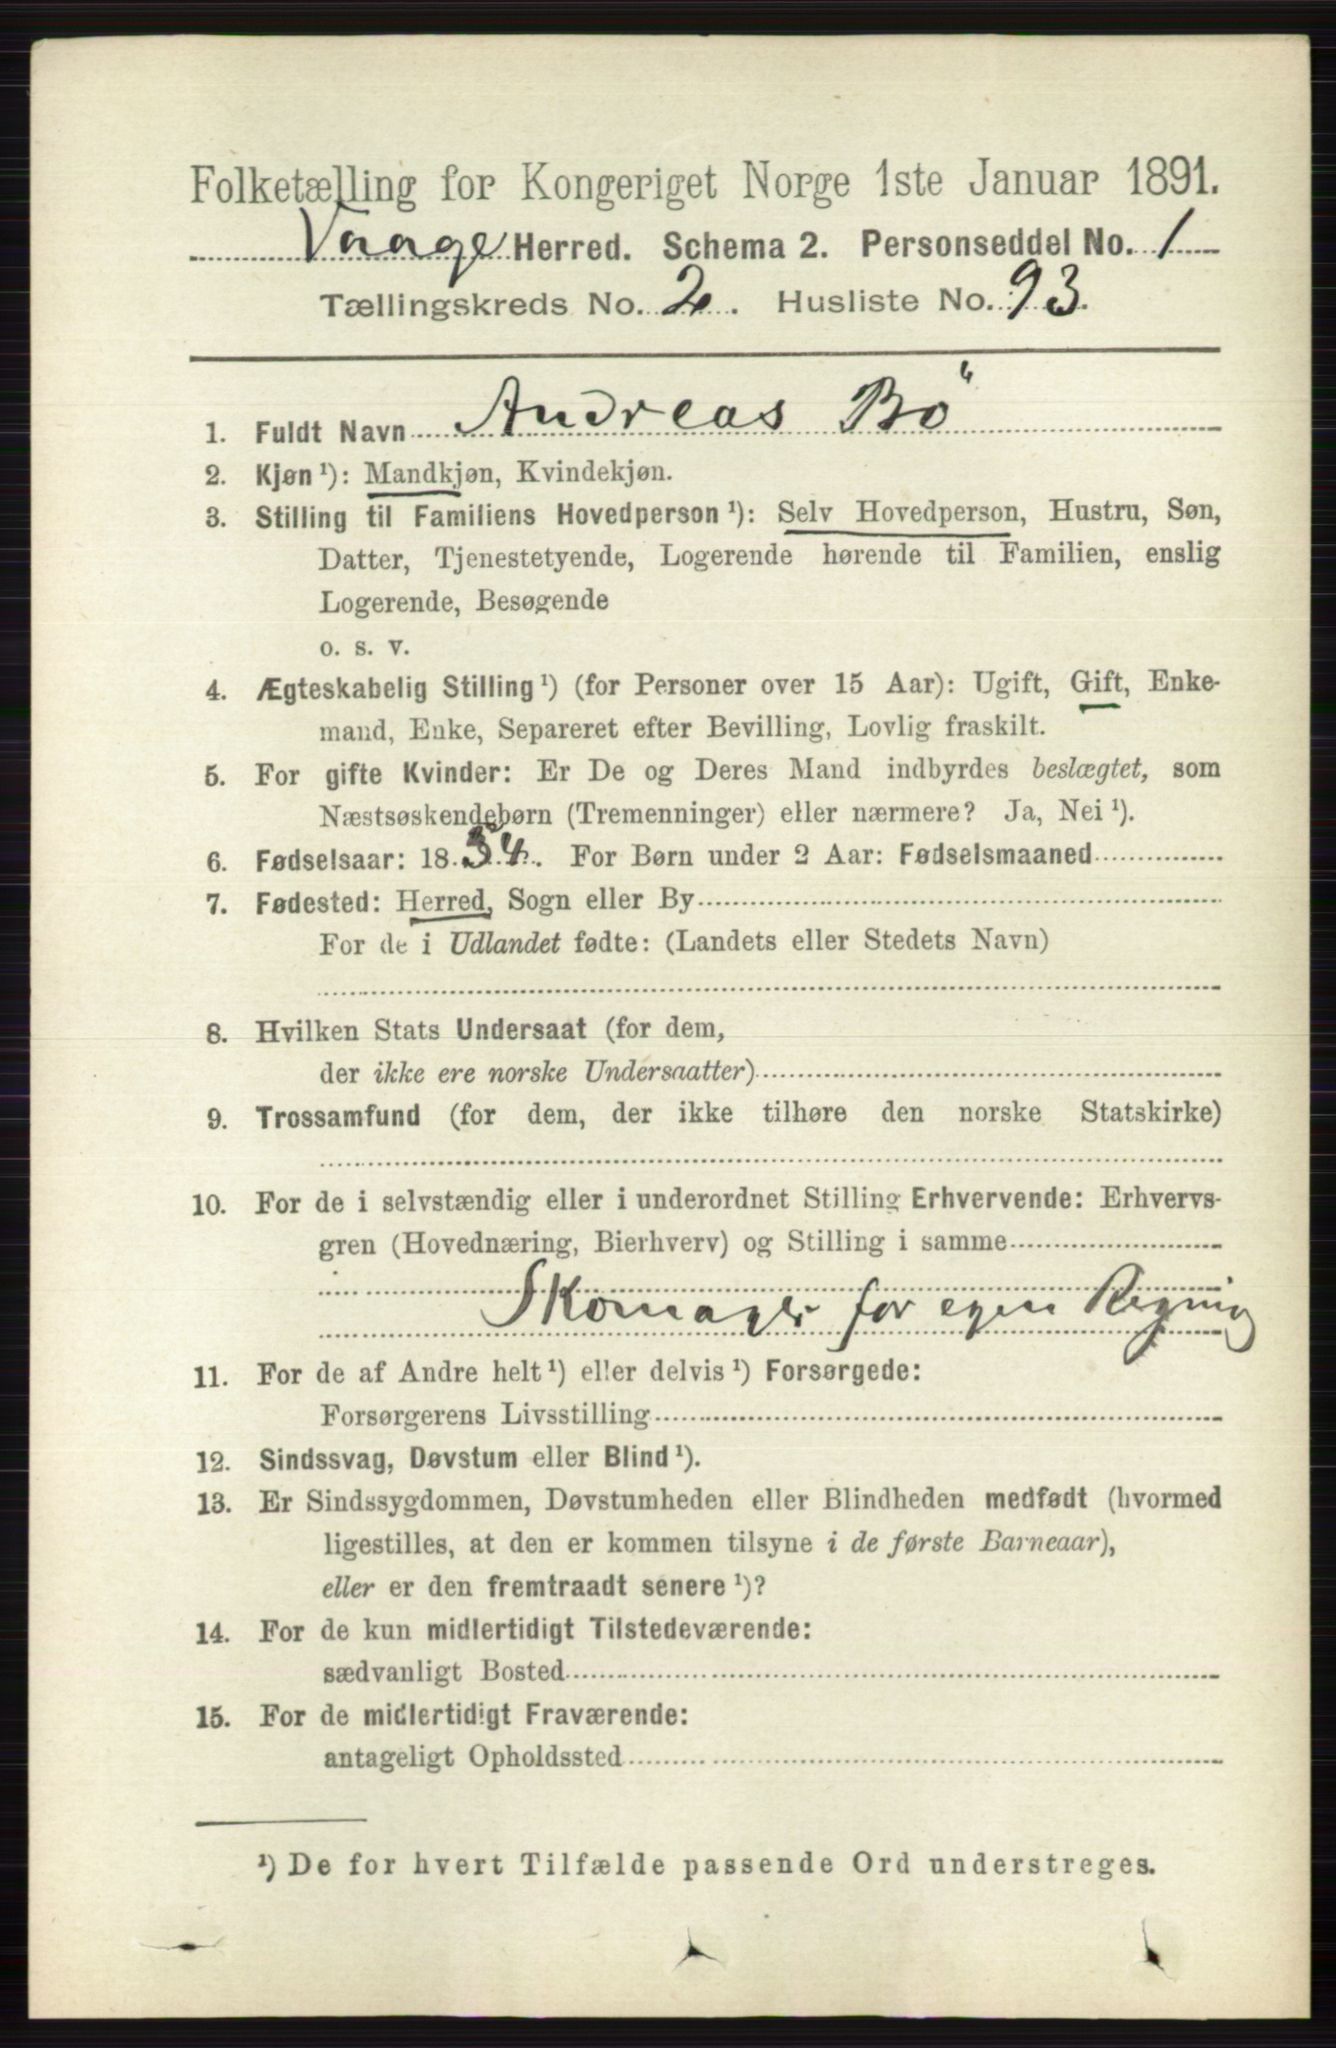 Folketælling for Kongeriget Norge 1ste Januar 1891.
Vaage Herred. Schema 2. Personseddel No. 1
Tællingskreds No. 2. Husliste No. 93.
1. Fuldt Navn Andreas Bö
2. Kjøn ¹): Mandkjøn, Kvindekjøn.
3. Stilling til Familiens Hovedperson ¹): Selv Hovedperson, Hustru, Søn,
Datter, Tjenestetyende, Logerende hørende til Familien, enslig
Logerende, Besøgende
o. s. v.
4. Ægteskabelig Stilling ¹) (for Personer over 15 Aar): Ugift, Gift, Enke-
mand, Enke, Separeret efter Bevilling, Lovlig fraskilt.
5. For gifte Kvinder: Er De og Deres Mand indbyrdes beslægtet, som
Næstsøskendebørn (Tremenninger) eller nærmere? Ja, Nei ¹).
6. Fødselsaar: 1834. For Børn under 2 Aar: Fødselsmaaned
7. Fødested: Herred, Sogn eller By
For de i Udlandet fødte: (Landets eller Stedets Navn)
8. Hvilken Stats Undersaat (for dem,
der ikke ere norske Undersaatter)
9. Trossamfund (for dem, der ikke tilhøre den norske Statskirke)
10. For de i selvstændig eller i underordnet Stilling Erhvervende: Erhvervs-
gren (Hovednæring, Bierhverv) og Stilling i samme
Skomager for egen Regning
11. For de af Andre helt ¹) eller delvis ¹) Forsørgede:
Forsørgerens Livsstilling
12. Sindssvag, Døvstum eller Blind ¹).
13. Er Sindssygdommen, Døvstumheden eller Blindheden medfødt (hvormed
ligestilles, at den er kommen tilsyne i de første Barneaar),
eller er den fremtraadt senere ¹)?
14. For de kun midlertidigt Tilstedeværende:
sædvanligt Bosted
15. For de midlertidigt Fraværende:
antageligt Opholdssted
¹) De for hvert Tilfælde passende Ord understreges.